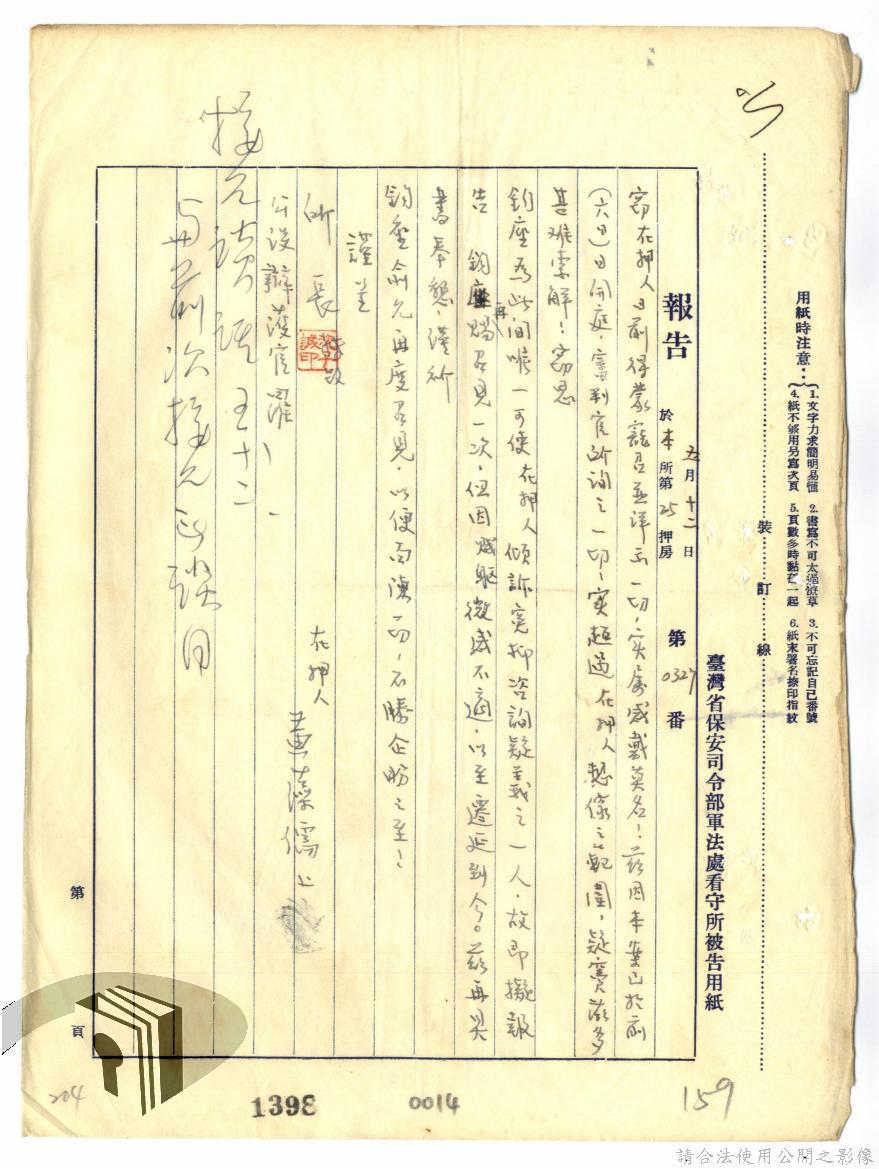 用紙時注意：
1. 文字力求簡明易懂　2. 書寫不可太過潦草　3. 不可忘記自己番號
4. 紙不够用另寫次頁　5. 頁數多時黏在一起　6. 紙末署名捺印指紋
裝訂線
臺灣省保安司令部軍法處看守所被告用紙
報告　五月十二日　於本所第25押房　第0327番
竊在押人日前得蒙寵召並詳示一切，實屬感戴莫名！茲因本案已於前
（六日）日開庭，審判官所詢之一切，實超過在押人想像之範圍，疑竇茲多
甚难索解！竊思
鈞座為此间唯一可使在押人傾訴寃抑咨詢疑義之一人，故即擬報
告　鈞座再賜召見一次，但因賤軀微感不適，以至遷延到今。茲再具
書奉懇，謹祈
鈞座俞允再度召見，以便面讓一切，不勝企盼之至！
謹呈
所長
公設辯護官
在押人　黃藻儒　上
擬允談話　五十二
與前次擬允
第　頁
204
1398
0014
159
請合法使用公開之影像